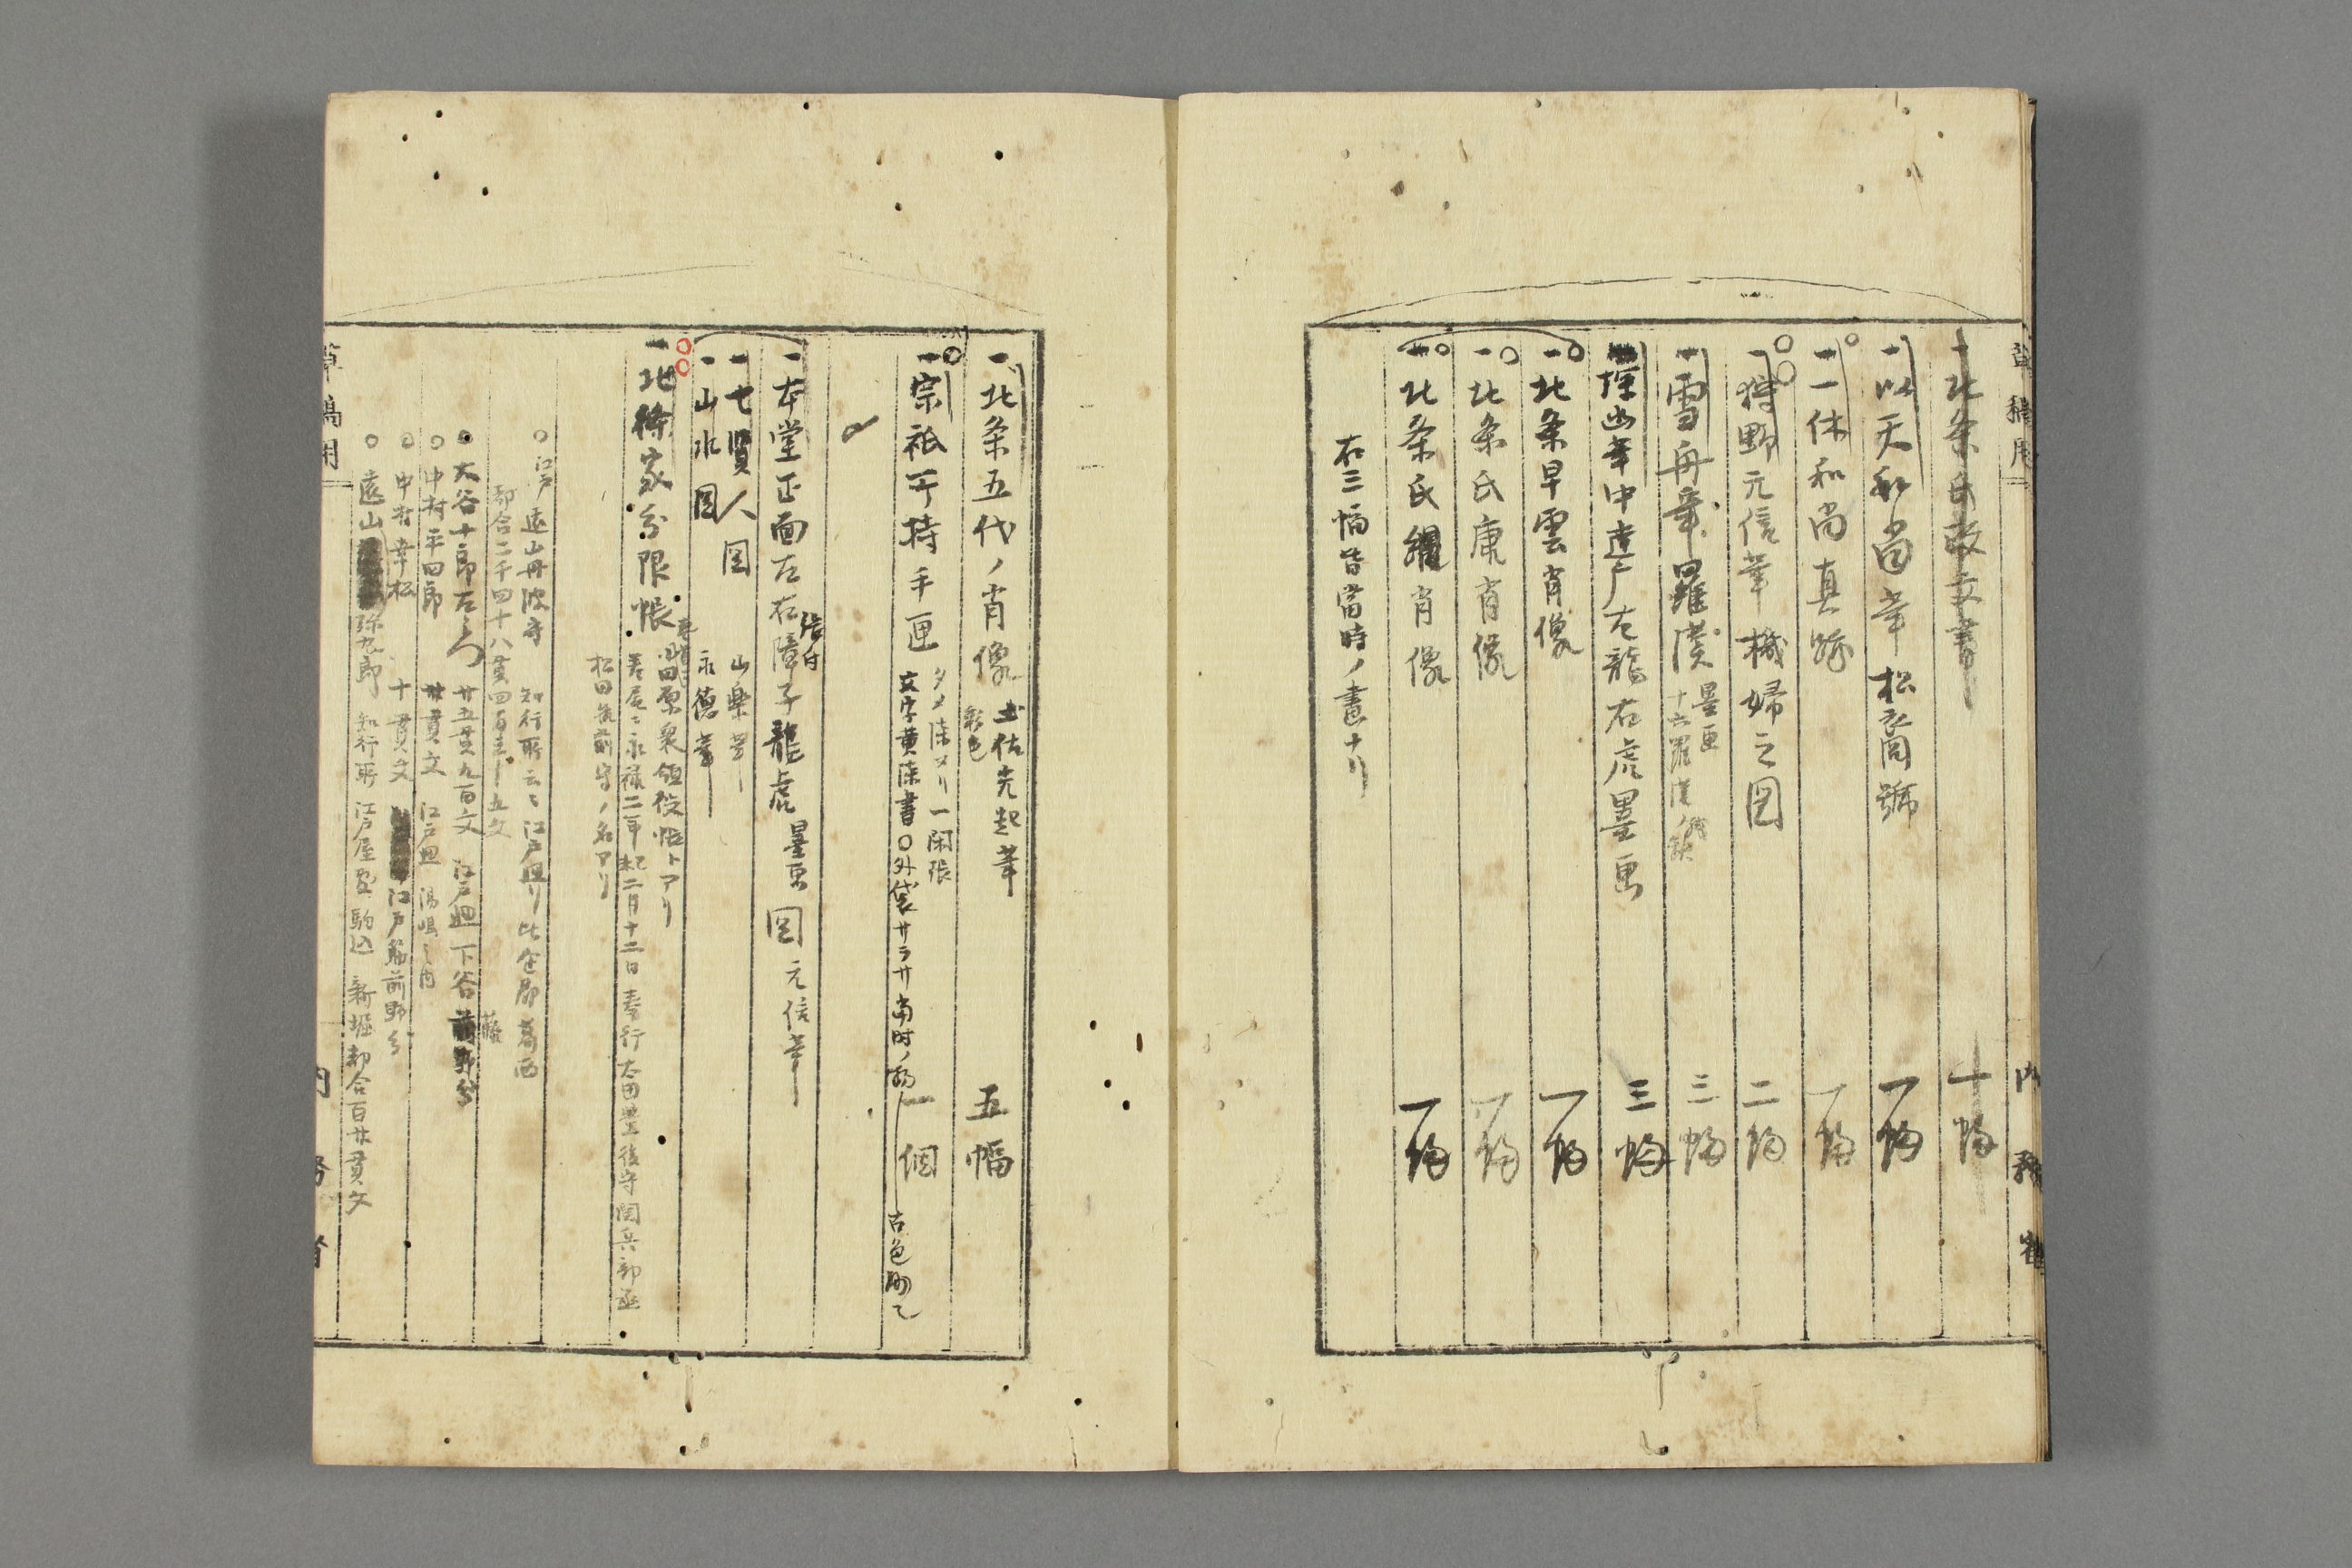 一北条氏政文書
十幅
一以天和尚筆松裔號
一幅
一一休和尚真跡
一幅
一狩野元信筆機婦之図
二幅
一雪舟筆羅漢
墨画
十六羅漢ノ
三幅
探幽筆中達广左龍右虎墨画
三幅
一北条早雲肖像
一幅
一北条氏康肖像
一幅
一北条氏綱肖像
一幅
右三幅皆當時ノ畫ナリ
内務省
一北条五代ノ肖像
土佐光起筆
彩色
五幅
一宗祇所持手匣
タメ漆ヌリ一閑張
文字黄漆書〇外袋サラサ當时ノ物
一個
古色
一本堂正面左右障子龍虎
張付
墨画
図
元信筆
一七賢人図
山楽筆
一山水図
永徳筆
一北條家分限帳
小田原衆領役帳トアリ
巻尾ニ永禄二年己未二月十二日奉行太田豊後守関兵部丞
松田筑前守ノ名アリ
〇江戸
遠山丹波守
知行所云々江戸廻リ比企郡葛西
都合二千四十八貫四百
五文
〇大谷十郎左
廿五貫九百文
江戸廻
下谷
〇中村平四郎
廿貫文
江戸廻
湯嶋之内
〇中村幸松
十貫文
江戸
前野分
〇遠山
弥九郎
知行所
江戸屋
駒込
新堀都合百廿貫文
草稿用
内務省